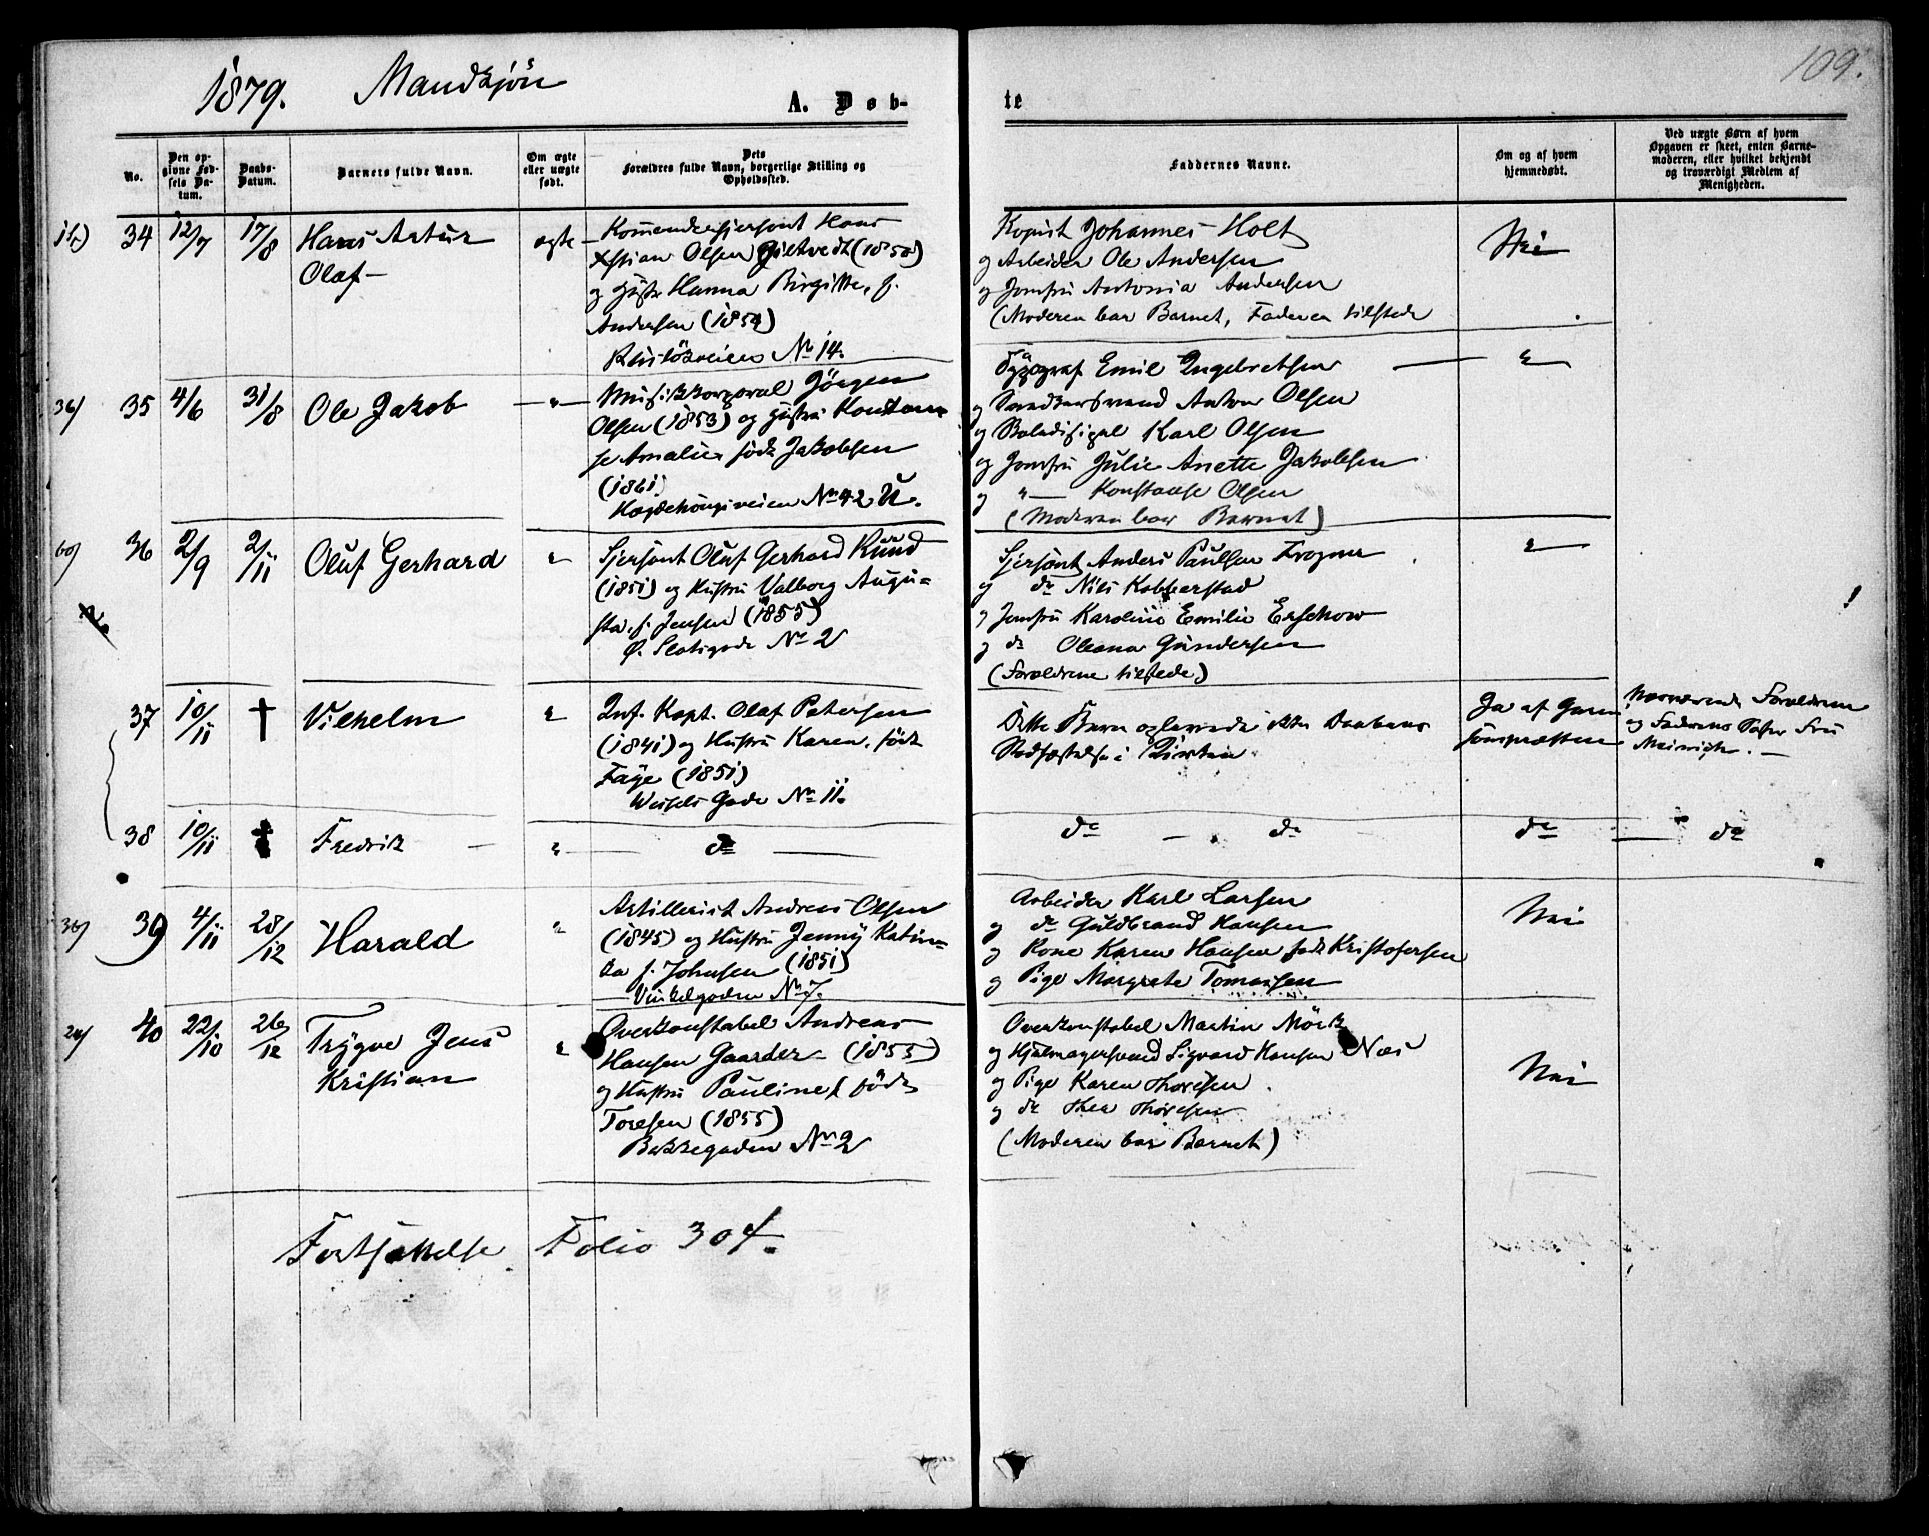 1879. Mandkjön
109.
A. Døb-
te
No.
Den op-
givne Fød-
sels Da-
tum.
Daabs-
Datum.
Barnets fulde Navn.
Om ægte
eller uægte
født.
Dets
Forældres fulde Navn, borgerlige Stilling og
Opholdssted.
Faddernes Navne.
Om og af hvem
hjemmedøbt.
Ved uægte Børn af hvem
Opgaven er skeet, enten Barne-
moderen, eller hvilket bekjendt
og troværdigt Medlem af
Menigheden.
34 12/7 17/8 Hans Artur
Olaf
ægte
Kommandersjersønt Hans
Kstian Olsen (1850)
og Hustr Hanna Birgitte, f.
Andersen (1854)
No 14.
Kopist Johannes Holt
og Arbeider Ole Andersen
og Jomfru Antonia Andersen
(Moderen bar Barnet, Faderen tilstede
Nei
35 4/6 31/8 Ole Jakob
"
Musikkorporal Jörgen
Olsen (1853) og Hustru Konstan
se Amalie född Jakobsen
(1861)
No 42 U.
Typograf Emil Ingebretsen
og Snedkersvend Anton Olsen
og Karl Olsen
og Jomfru Julie Anette Jakobsen
og " Konstanse Olsen
(Moderen bar Barnet)
"
36 2/9 2/11 Oluf Gerhard
"
Sjersönt Oluf Gerhard Ruud
(1851) og Hustru Valborg Augu=
sta, f. Jensen (1855)
Ø. Slotsgade No 2
Sjersönt Anders Paulsen Frogner
og do Nils Kobberstad
og Jomfru Karoline Emilie Erschow
og do Oleana Gundersen
(Forældrene tilstede)
"
37 10/11 † Vilhelm
"
Inf. Kapt. Olaf Petersen
(1841) og Hustru Karen, född
Faye (1851)
Wessels Gade No 11.
Dette Barn oplevede ikke Daabens
Stadfæstelse i Kirken
Ja af Garni
sonspræsten
Nærværende Forældrene
og Faderens Søster Fru
38 10/11 † Fredrik
"
do
do - do
do
do
39 4/11 28/12 Harald
"
Artillerist Andreas Olsen
(1845) og Hustru Jenny Katin=
ka f. Johnsen (1851)
Vinkelgaden No 7.
Arbeider Karl Larsen
og do Guldbrand Hansen
og Kone Karen Hansen född Kristofersen
og Pige Margrete Tomassen
Nei
40 22/10 26/12 Trygve Jens
Kristian
"
Overkonstabel Andreas
Hansen Gaarder (1855)
og Hustru Pauline född
Toresen (1855)
Bakkegaden No 2
Overkonstabel Martin Mörk
og Hjulmagersvend Sigvard Hansen Næs
og Pige Karen Thoresen
og do Thea Thoresen
(Moderen bar Barnet)
Nei
Fortsættelse Folio 304.